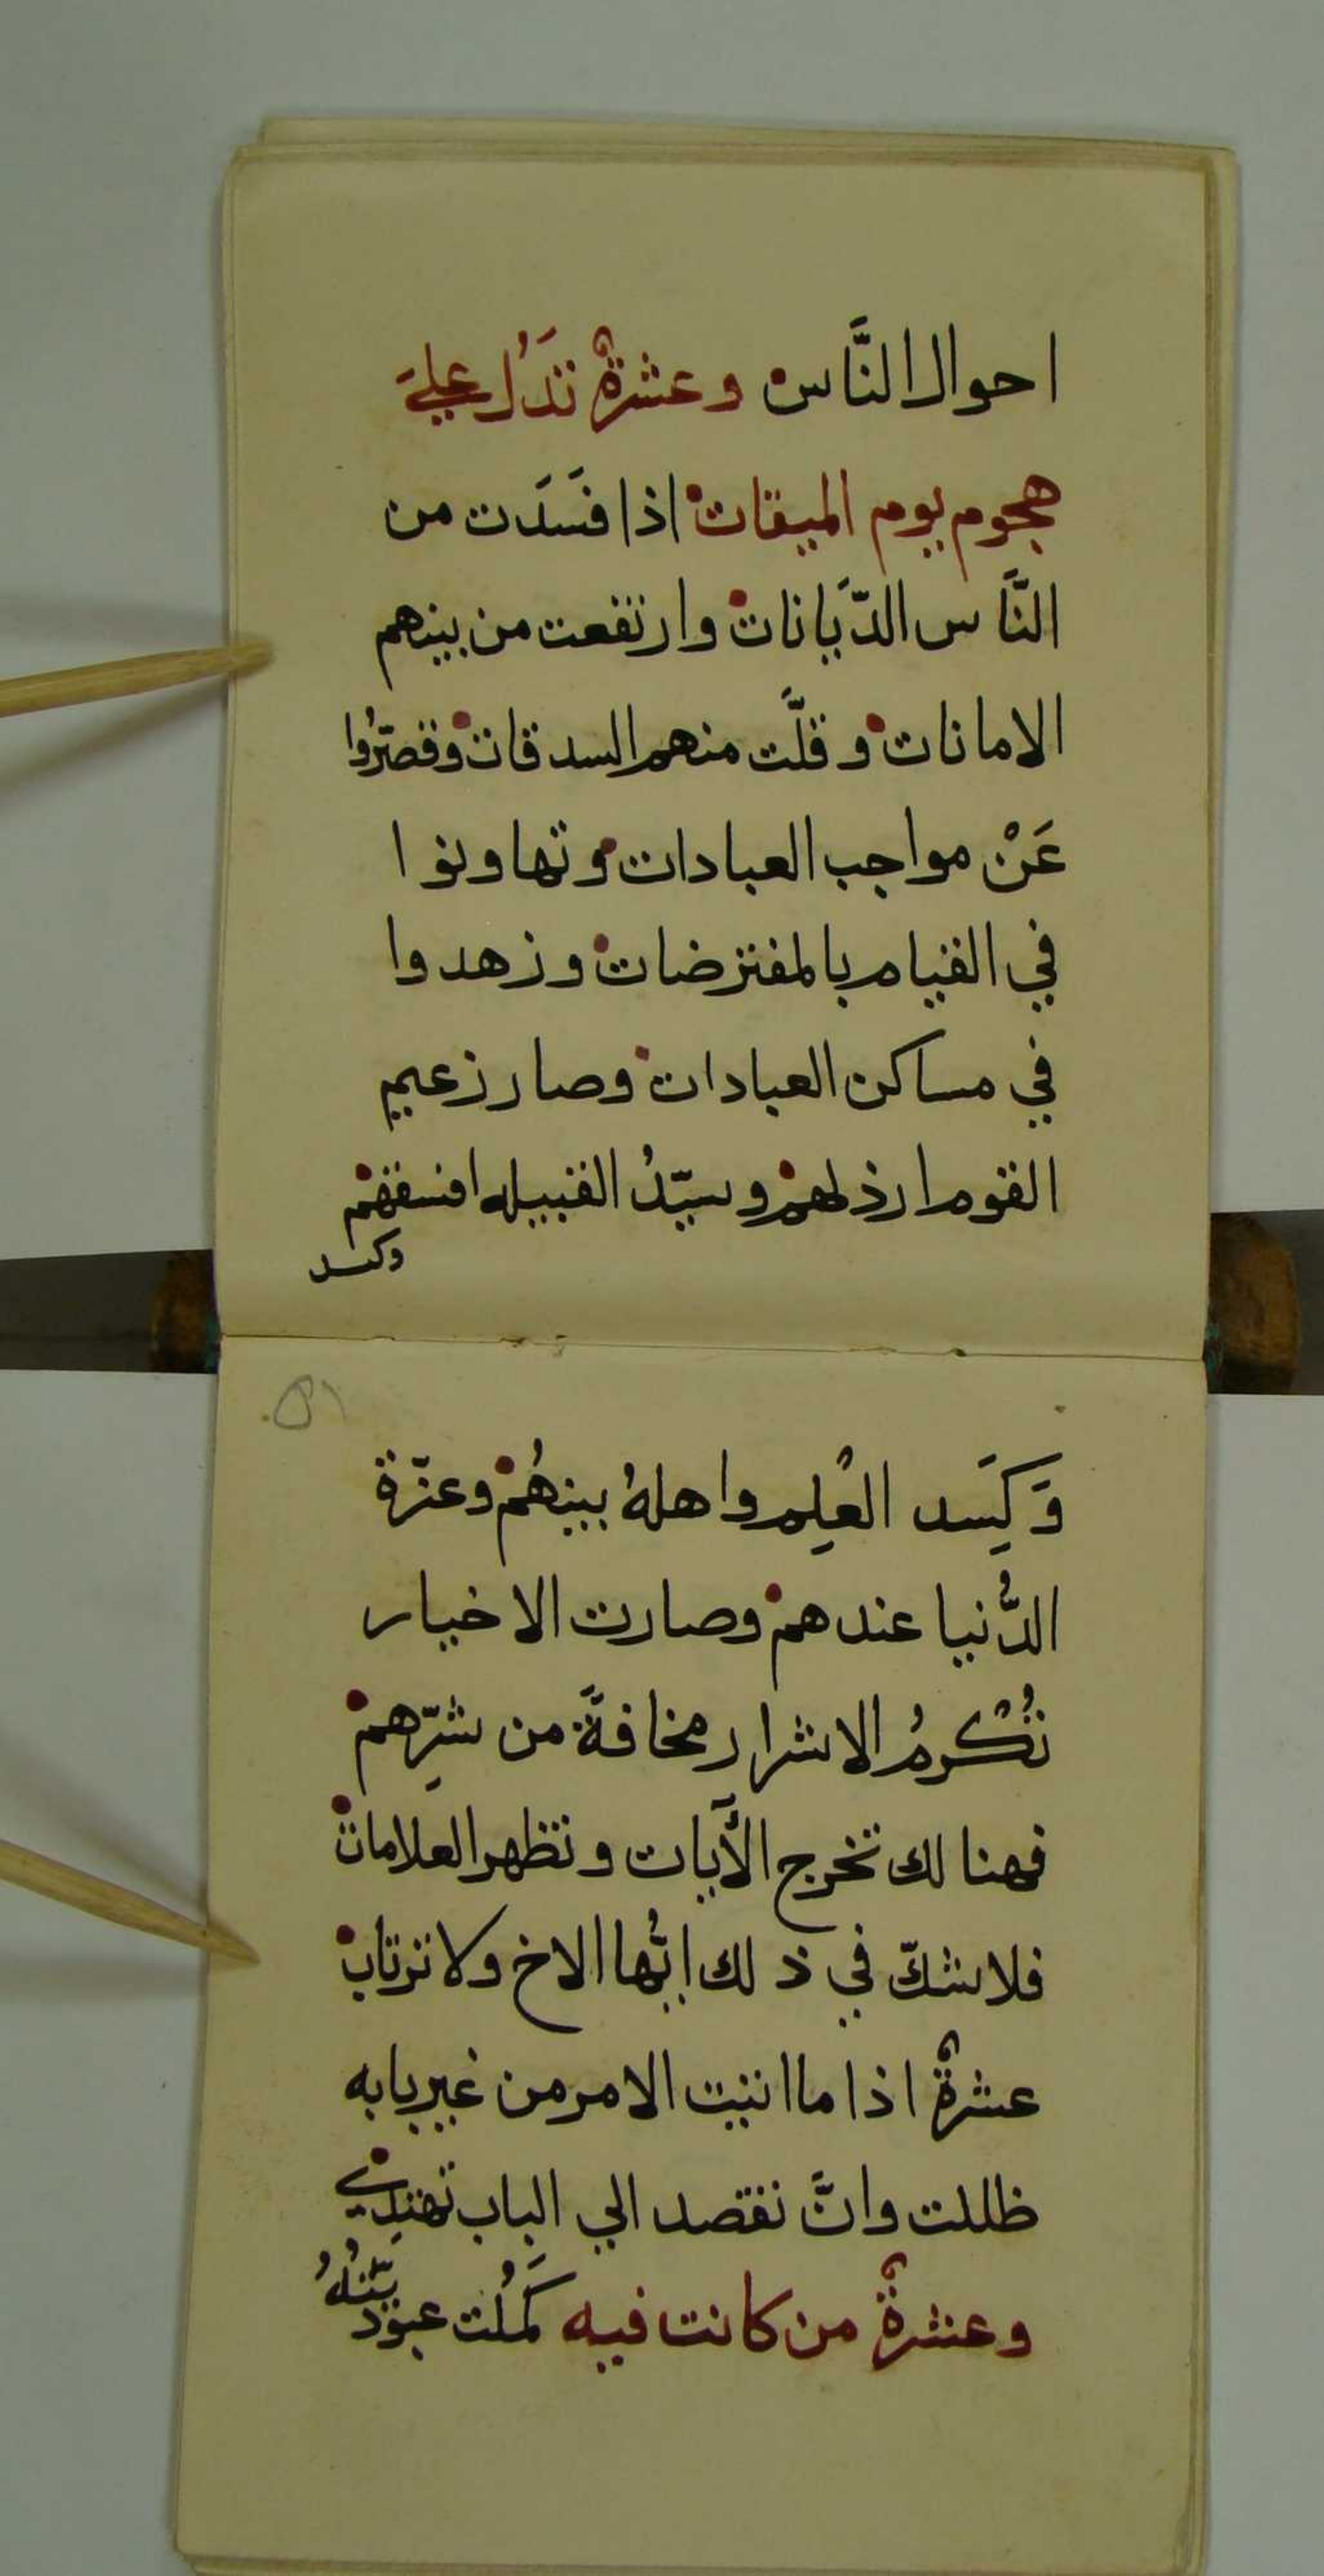 احوال النَّاس وعشرةٌ تدَلُ عليَ
هجوم يوم الميقات اذا فسَدَت من
النَّاس الدّيَانات وارتفعت من بينهم
الامانات وقلَّت منهم السدقات وقصّرُوا
عَنْ مواجب العبادات وتهاونوا
في القيام بالمفترضات وزهدوا
في مساكن العبادات وصار زعيم
القوم ارذلهم وسيّدُ القبيله افسقهم
وكسد
وَكَسِد العْلِم واهلهُ بينهُم وعزّة
الدُّنيا عندهم وصارت الاخيار
تُكْرمُ الاشرار مخافةً من شرِّهم
فهنالك تخرج الأَيات وتظهر العلامات
فلا شكّ في ذلك ايُّها الاخ ولا ترتاب
عشرةٌ اذا ما اتيت الامر من غير بابه
ظللت وانَّ تقصد الي الباب تهتدِي
وعشرةٌ من كانت فيه كَمُلت عبوديّتهُ